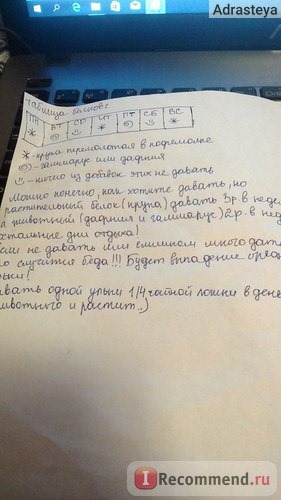 Adrasteya
Таблица белков:
ПН ВТ СР ЧТ ПТ СБ ВС
* - крупа перемолотая в кофемолке
- гаммарус или дафния
- ничего из добавок этих не давать
Можно конечно, как хотите давать, но
растительный белок (крупа) давать 3р. в неде
а животный (дафния и гаммарус) 2р. в нед
остальные дни отдыха!
если не давать или слишком много дат
о случится беда!!! Будет выпадение орган
давать одной улитки 1/4 чайной ложки в день
животного и растит..)
IRecommend.ru